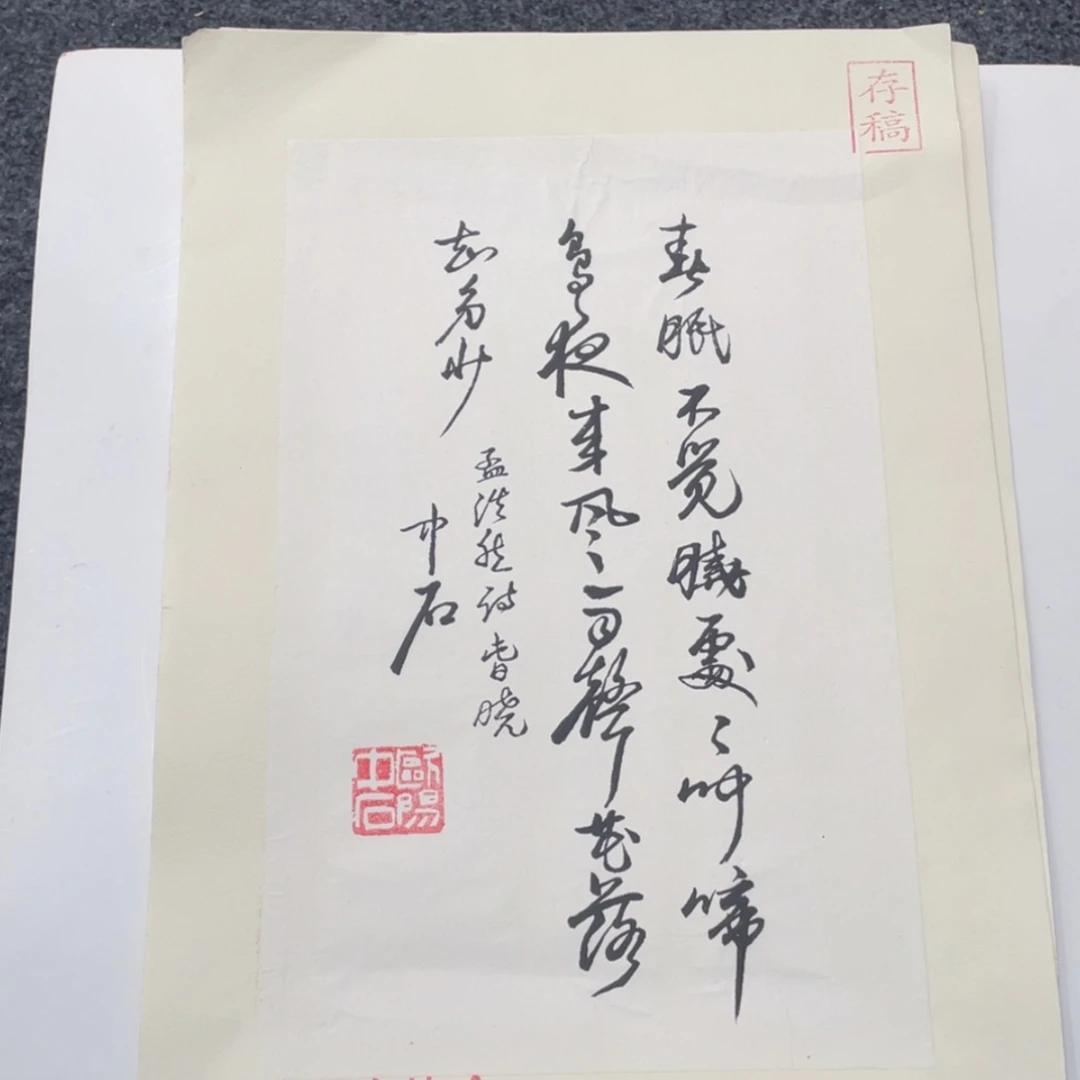 存稿
春眠不觉曉處〻叫啼
鸟夜来风雨聲花落
知多少
孟浩然诗春晓
中石
歐陽中石